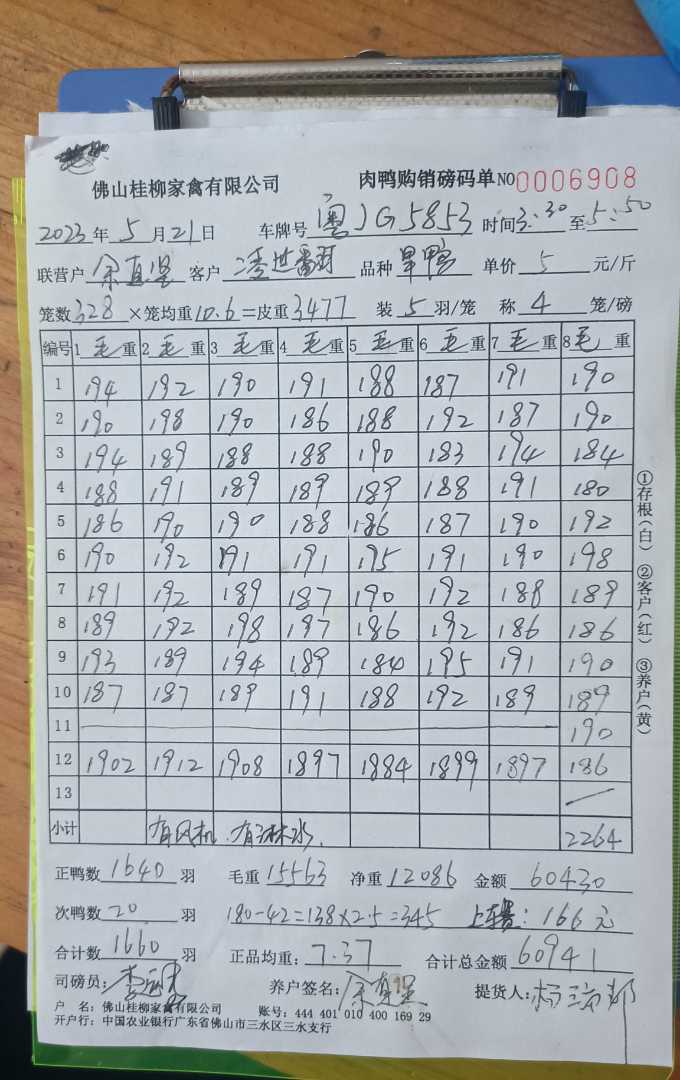 佛山桂柳家禽有限公司 肉鸭购销磅码单 NO 0006908
2023年5月21日 车牌号 粤JG5853 时间3:30至5:50
联营户 余真坚 客户 品种 旱鸭 单价 5 元/斤
笼数328×笼均重10.6=皮重3477 装5羽/笼 称4笼/磅
编号 1毛重 2毛重 3毛重 4毛重 5毛重 6毛重 7毛重 8毛重
1 194 192 190 191 188 187 191 190
2 190 198 190 186 188 192 187 190
3 194 189 188 188 190 183 194 184
4 188 191 189 189 189 188 191 180
5 186 190 190 188 186 187 190 192
6 190 192 191 191 195 191 190 198
7 191 192 189 187 190 192 188 189
8 189 192 198 197 186 192 186 186
9 193 189 194 189 184 195 191 190
10 187 187 189 191 188 192 189 189
11 190
12 1902 1912 1908 1897 1884 1899 1897 186
13
小计 有风机.有淋水. 2264
正鸭数1640羽 毛重15563 净重12086 金额60430
次鸭数20羽 180-42=138×2.5=345 上车费:166元
合计数1660羽 正品均重:7.37 合计总金额60941
司磅员: 养户签名:余真坚 提货人:
户 名:佛山桂柳家禽有限公司 账号:444 401 010 400 169 29
开户行:中国农业银行广东省佛山市三水区三水支行
①存根(白) ②客户(红) ③养户(黄)